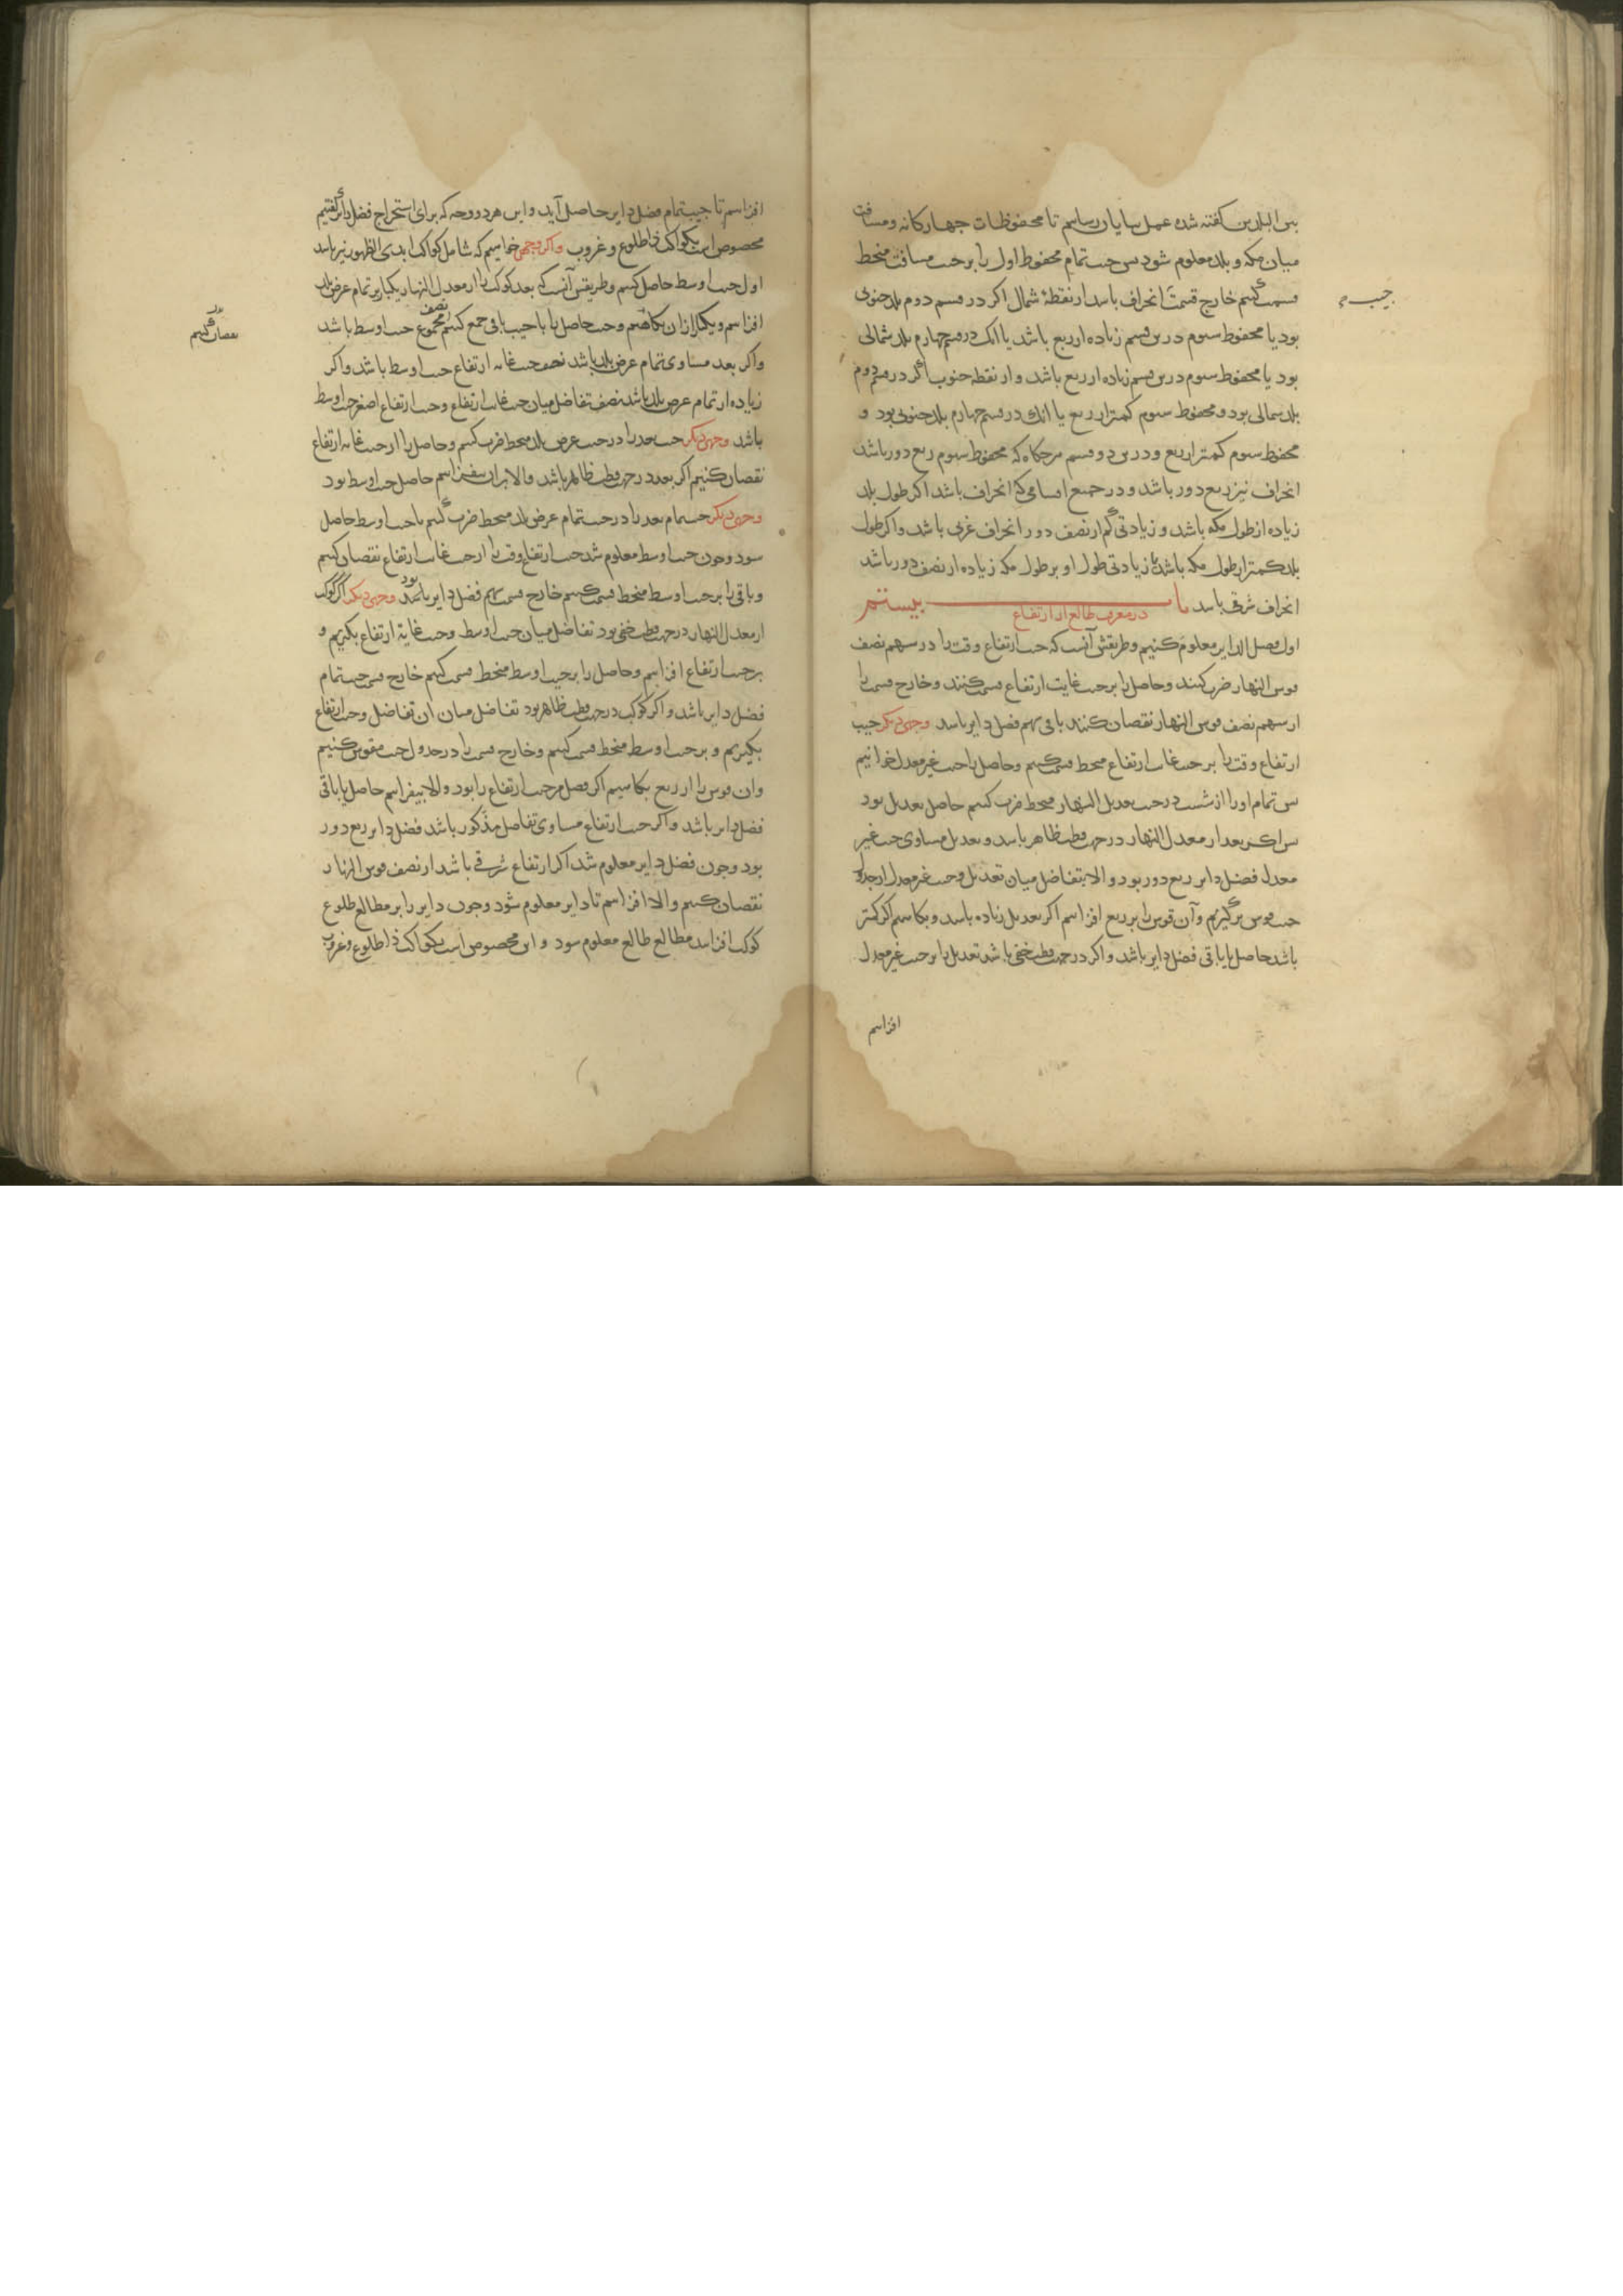 بین البلدین گفته شده عمل بپایان رسانیم تا محفوظات چهارگانه و مسافت
میان مکه و بلد معلوم شود پس جیب تمام محفوظ اول را بر جیب مسافت منحط
قسمت کنیم خارج قسمت انحراف باشد از نقطهٔ شمال اگر در قسم دوم بلد جنوبی
جیب
بود یا محفوظ سوم درین قسم زیاده از ربع باشد یا آنک در قسم چهارم بلد شمالی
بود یا محفوظ سوم درین قسم زیاده از ربع باشد و از نقطه جنوب اگر در قسم دوم
بلد شمالی بود و محفوظ سوم کمتر از ربع یا آنک در قسم چهارم بلد جنوبی بود و
محفوظ سوم کمتر از ربع و درین دو قسم هرگاه که محفوظ سوم ربع دور باشد
انحراف نیز ربع دور باشد و در جمیع اقسامی که انحراف باشد اگر طول بلد
زیاده از طول مکه باشد و زیادتی کم از نصف دور انحراف غربی باشد و اگر طول
بلد کمتر از طول مکه باشد یا زیادتی طول او بر طول مکه زیاده از نصف دور باشد
انحراف شرقی باشد باب بیستم
در معرفت طالع از ارتفاع
اول فضل الدایر معلوم کنیم و طریقش آنست که جیب ارتفاع وقت را در سهم نصف
قوس النهار ضرب کنند و حاصل را بر جیب غایت ارتفاع قسمت کنند و خارج قسمت را
از سهم نصف قوس النهار نقصان کنند باقی سهم فضل دایر باشد وجهی دیگر جیب
ارتفاع وقت را بر جیب غایت ارتفاع منحط قسمت کنیم و حاصل را جیب غیر معدل خوانیم
پس تمام او را از شست در جیب تعدیل النهار منحط ضرب کنیم حاصل تعدیل بود
پس اگر بعد از معدل النهار در جهت قطب ظاهر باشد و تعدیل مساوی جیب غیر
معدل فضل دایر ربع دور بود و الا بتفاضل میان تعدیل و جیب غیر معدل از جدول
جیب قوس برگیریم و آن قوس را بر ربع افزاییم اگر تعدیل زیاده باشد و بکاهیم اگر کمتر
باشد حاصل یا باقی فضل دایر باشد و اگر در جهت قطب خفی باشد تعدیل را بر جیب غیر معدل
افزاییم
افزاییم تا جیب تمام فضل دایر حاصل آید و این هر دو وجه که برای استخراج فضل دایر گفتیم
مخصوص است بکواکب ذا طلوع و غروب و اگر وجهی خواهیم که شامل کواکب ابدی الظهور نیز باشد
اول جیب اوسط حاصل کنیم و طریقش آنست که بعد کوکب را از معدل النهار یکبار بر تمام عرض بلد
افزاییم و یکبار از آن بکاهیم و جیب حاصل را با جیب باقی جمع کنیم نصف مجموع جیب اوسط باشد
نقصان کنیم
و اگر بعد مساوی تمام عرض بلد باشد نصف جیب غایت ارتفاع جیب اوسط باشد و اگر
زیاده از تمام عرض بلد باشد نصف تفاضل میان جیب غایت ارتفاع و جیب ارتفاع اصغر جیب اوسط
باشد وجهی دیگر جیب بعد را در جیب عرض بلد منحط ضرب کنیم و حاصل را از جیب غایت ارتفاع
نقصان کنیم اگر بعد در جهت قطب ظاهر باشد و الا بران بیفزاییم حاصل جیب اوسط بود
وجهی دیگر جیب تمام بعد را در جیب تمام عرض بلد منحط ضرب کنیم تا جیب اوسط حاصل
شود و چون جیب اوسط معلوم شد جیب ارتفاع وقت را از جیب غایت ارتفاع نقصان کنیم
و باقی را بر جیب اوسط منحط قسمت کنیم خارج قسمت سهم فضل دایر باشد وجهی دیگر اگر کوکب
از معدل النهار در جهت قطب خفی بود تفاضل میان جیب اوسط و جیب غایة ارتفاع بگیریم و
بر جیب ارتفاع افزاییم و حاصل را بر جیب اوسط منحط قسمت کنیم خارج قسمت جیب تمام
فضل دایر باشد و اگر کوکب در جهت قطب ظاهر بود تفاضل میان آن تفاضل و جیب ارتفاع
بگیریم و بر جیب اوسط منحط قسمت کنیم و خارج قسمت را در جدول جیب مقوس کنیم
و آن قوس را از ربع بکاهیم اگر فضل مر جیب ارتفاع را بود و الا بیفزاییم حاصل یا باقی
فضل دایر باشد و اگر جیب ارتفاع مساوی تفاضل مذکور باشد فضل دایر ربع دور
بود و چون فضل دایر معلوم شد اگر ارتفاع شرقی باشد از نصف قوس النهار
نقصان کنیم و الا افزاییم تا دایر معلوم شود و چون دایر را بر مطالع طلوع
کوکب افزایند مطالع طالع معلوم شود و این مخصوص است بکواکب ذا طلوع و غروب